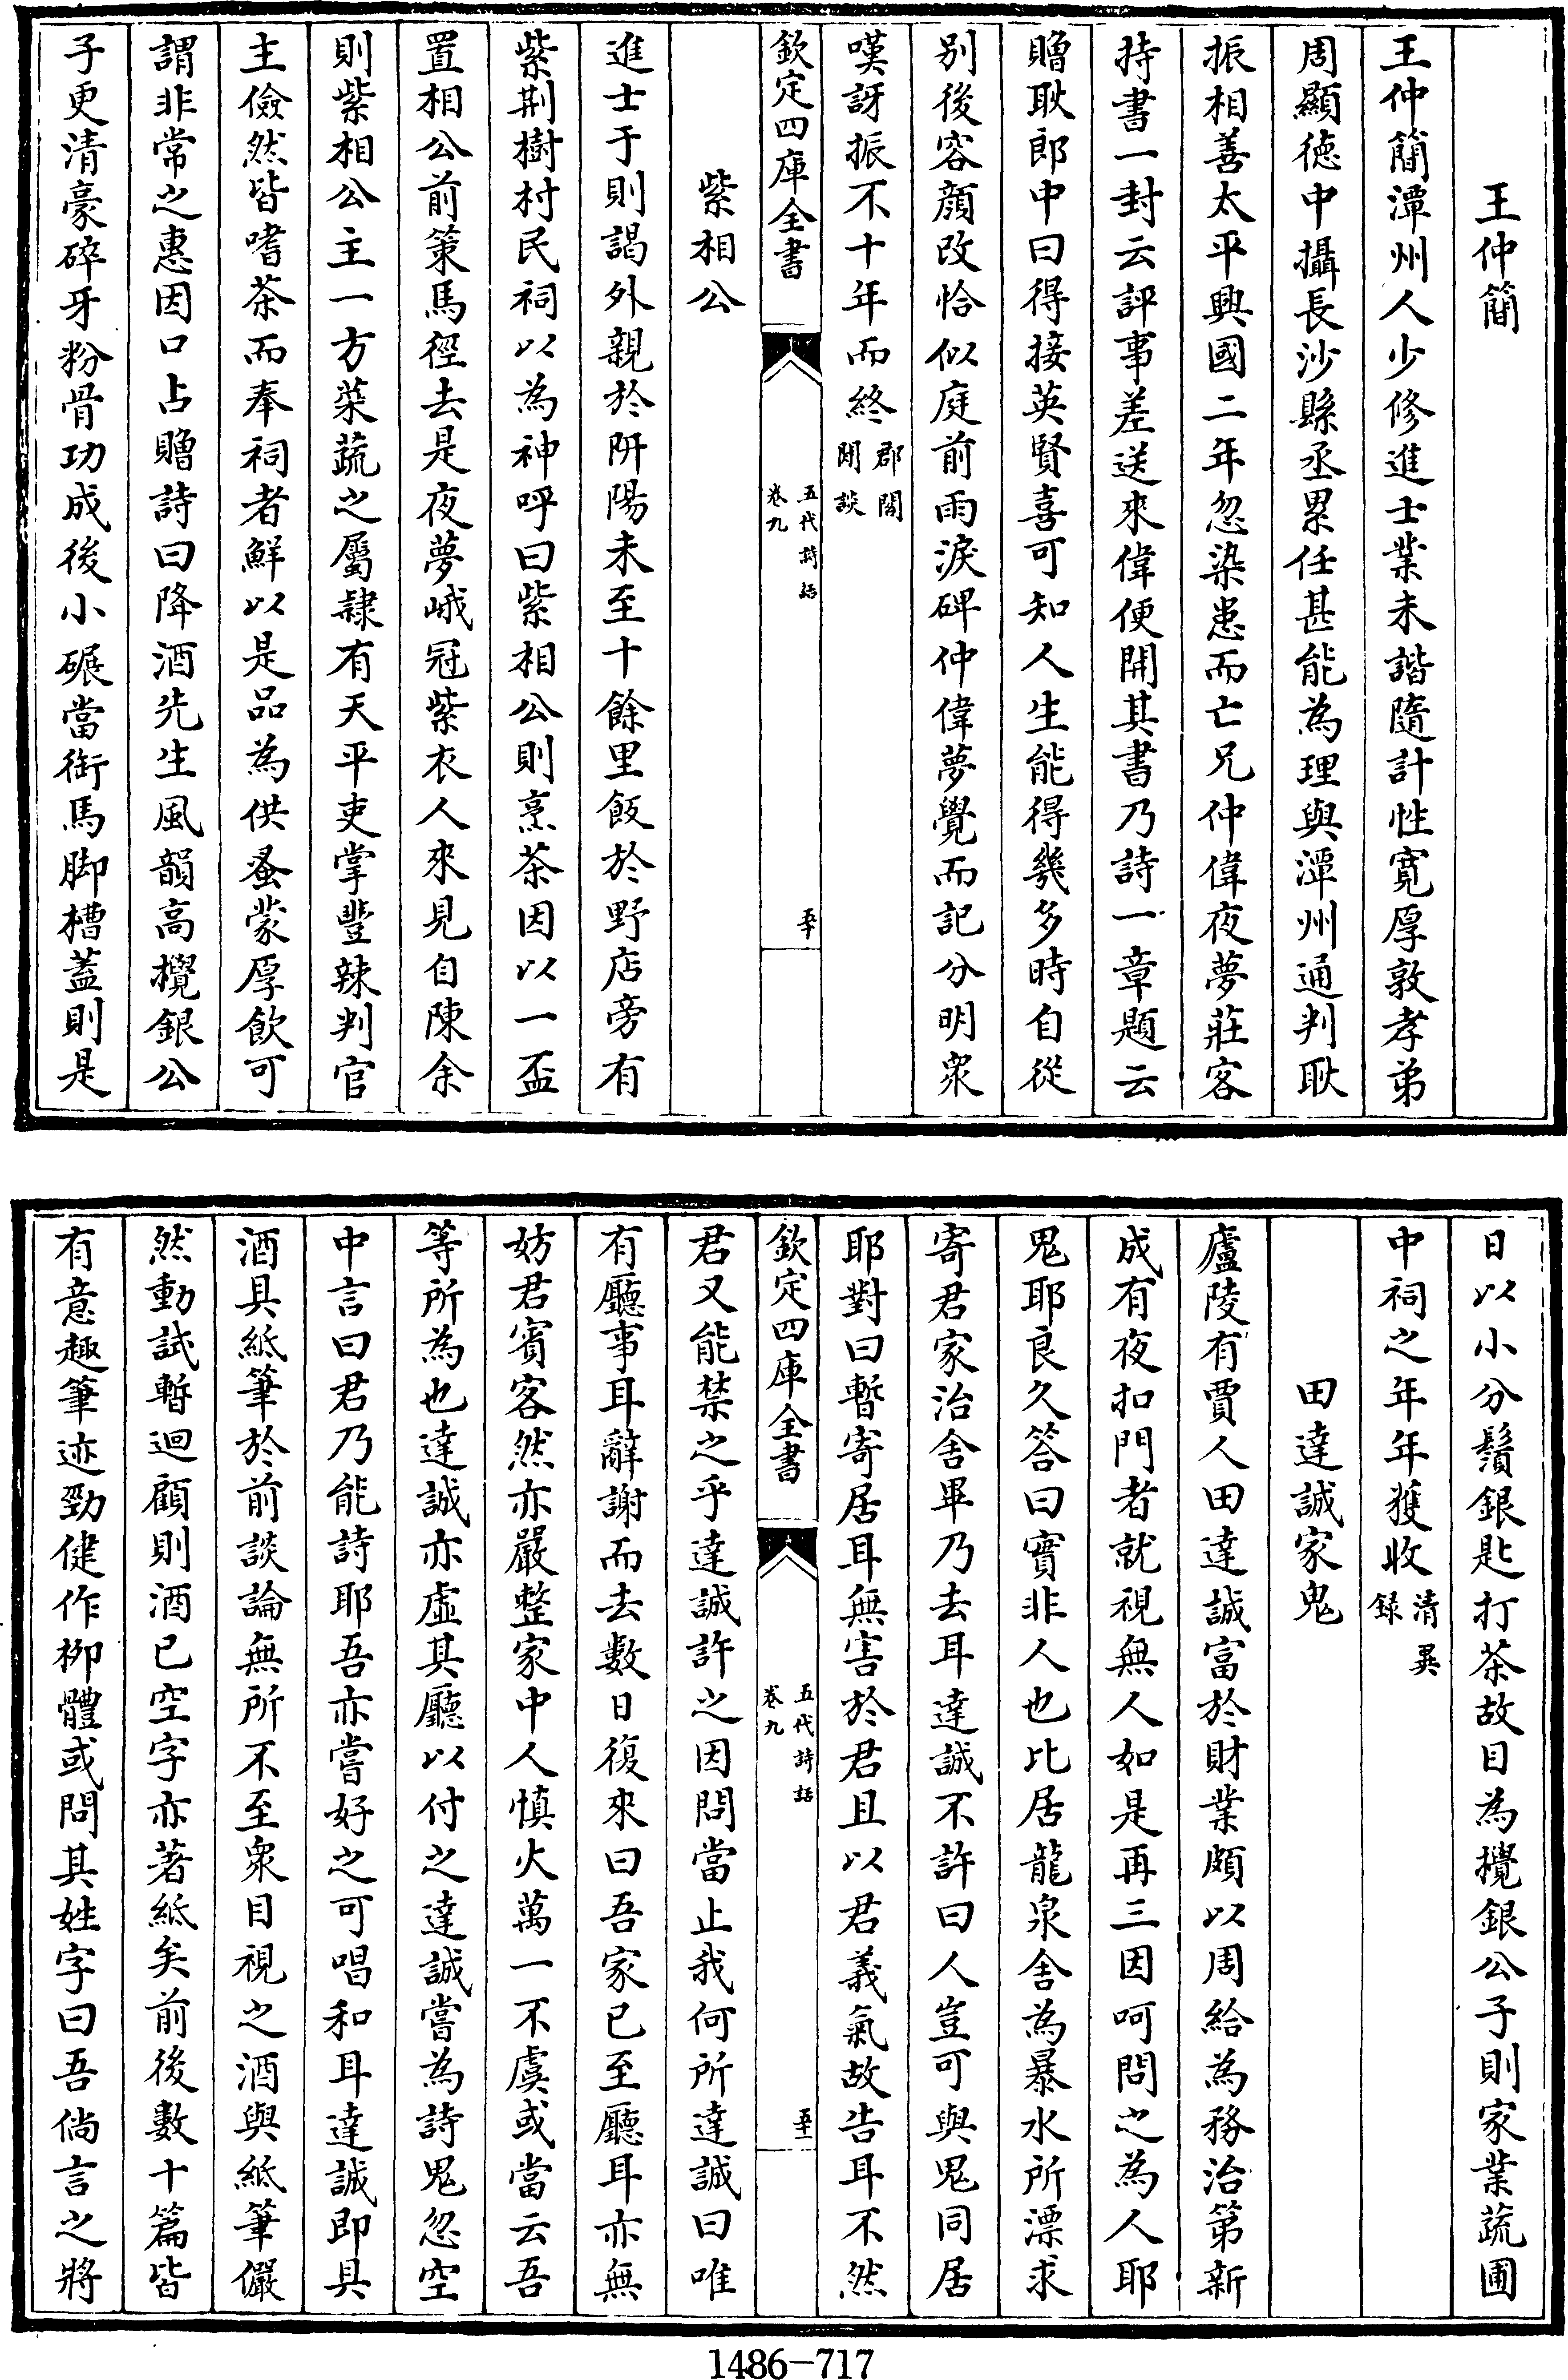 王仲簡
王仲簡潭州人少修進士業未諧隨計性寬厚敦孝弟
周顯徳中攝長沙縣丞累任甚能為理與潭州通判耿
振相善太平興國二年忽染患而亡兄仲偉夜夢莊客
持書一封云評事差送來偉便開其書乃詩一章題云
贈耿郎中曰得接英賢喜可知人生能得幾多時自從
别後容顔改恰似庭前雨淚碑仲偉夢覺而記分明衆
嘆訝振不十年而終郡閣閒談
欽定四庫全書
五代詩話
卷九
五十
紫相公
進士于則謁外親於阱陽未至十餘里飯於野店旁有
紫荆樹村民祠以為神呼曰紫相公則烹茶因以一盃
置相公前策馬徑去是夜夢峨冠紫衣人來見自陳余
則紫相公主一方菜蔬之屬隸有天平吏掌豐辣判官
主儉然皆嗜茶而奉祠者鮮以是品為供蚤蒙厚飲可
謂非常之惠因口占贈詩曰降酒先生風韻高攪銀公
子更清豪碎牙粉骨功成後小碾當銜馬脚槽蓋則是
日以小分鬚銀匙打茶故目為攪銀公子則家業蔬圃
中祠之年年獲收清異録
田達誠家鬼
廬陵有賈人田達誠富於財業頗以周給為務治第新
成有夜扣門者就視無人如是再三因呵問之為人耶
鬼耶良久答曰實非人也比居龍泉舍為暴水所漂求
寄君家治舍畢乃去耳達誠不許曰人豈可與鬼同居
耶對曰暫寄居耳無害於君且以君義氣故告耳不然
欽定四庫全書
五代詩話
卷九
五十一
君又能禁之乎達誠許之因問當止我何所達誠曰唯
有廳事耳辭謝而去數日復來曰吾家已至廳耳亦無
妨君賓客然亦嚴整家中人慎火萬一不虞或當云吾
等所為也達誠亦虛其廳以付之達誠嘗為詩鬼忽空
中言曰君乃能詩耶吾亦嘗好之可唱和耳達誠即具
酒具紙筆於前談論無所不至衆目視之酒與紙筆儼
然動試暫迴顧則酒已空字亦著紙矣前後數十篇皆
有意趣筆迹勁健作柳體或問其姓字曰吾倘言之將
1486—717